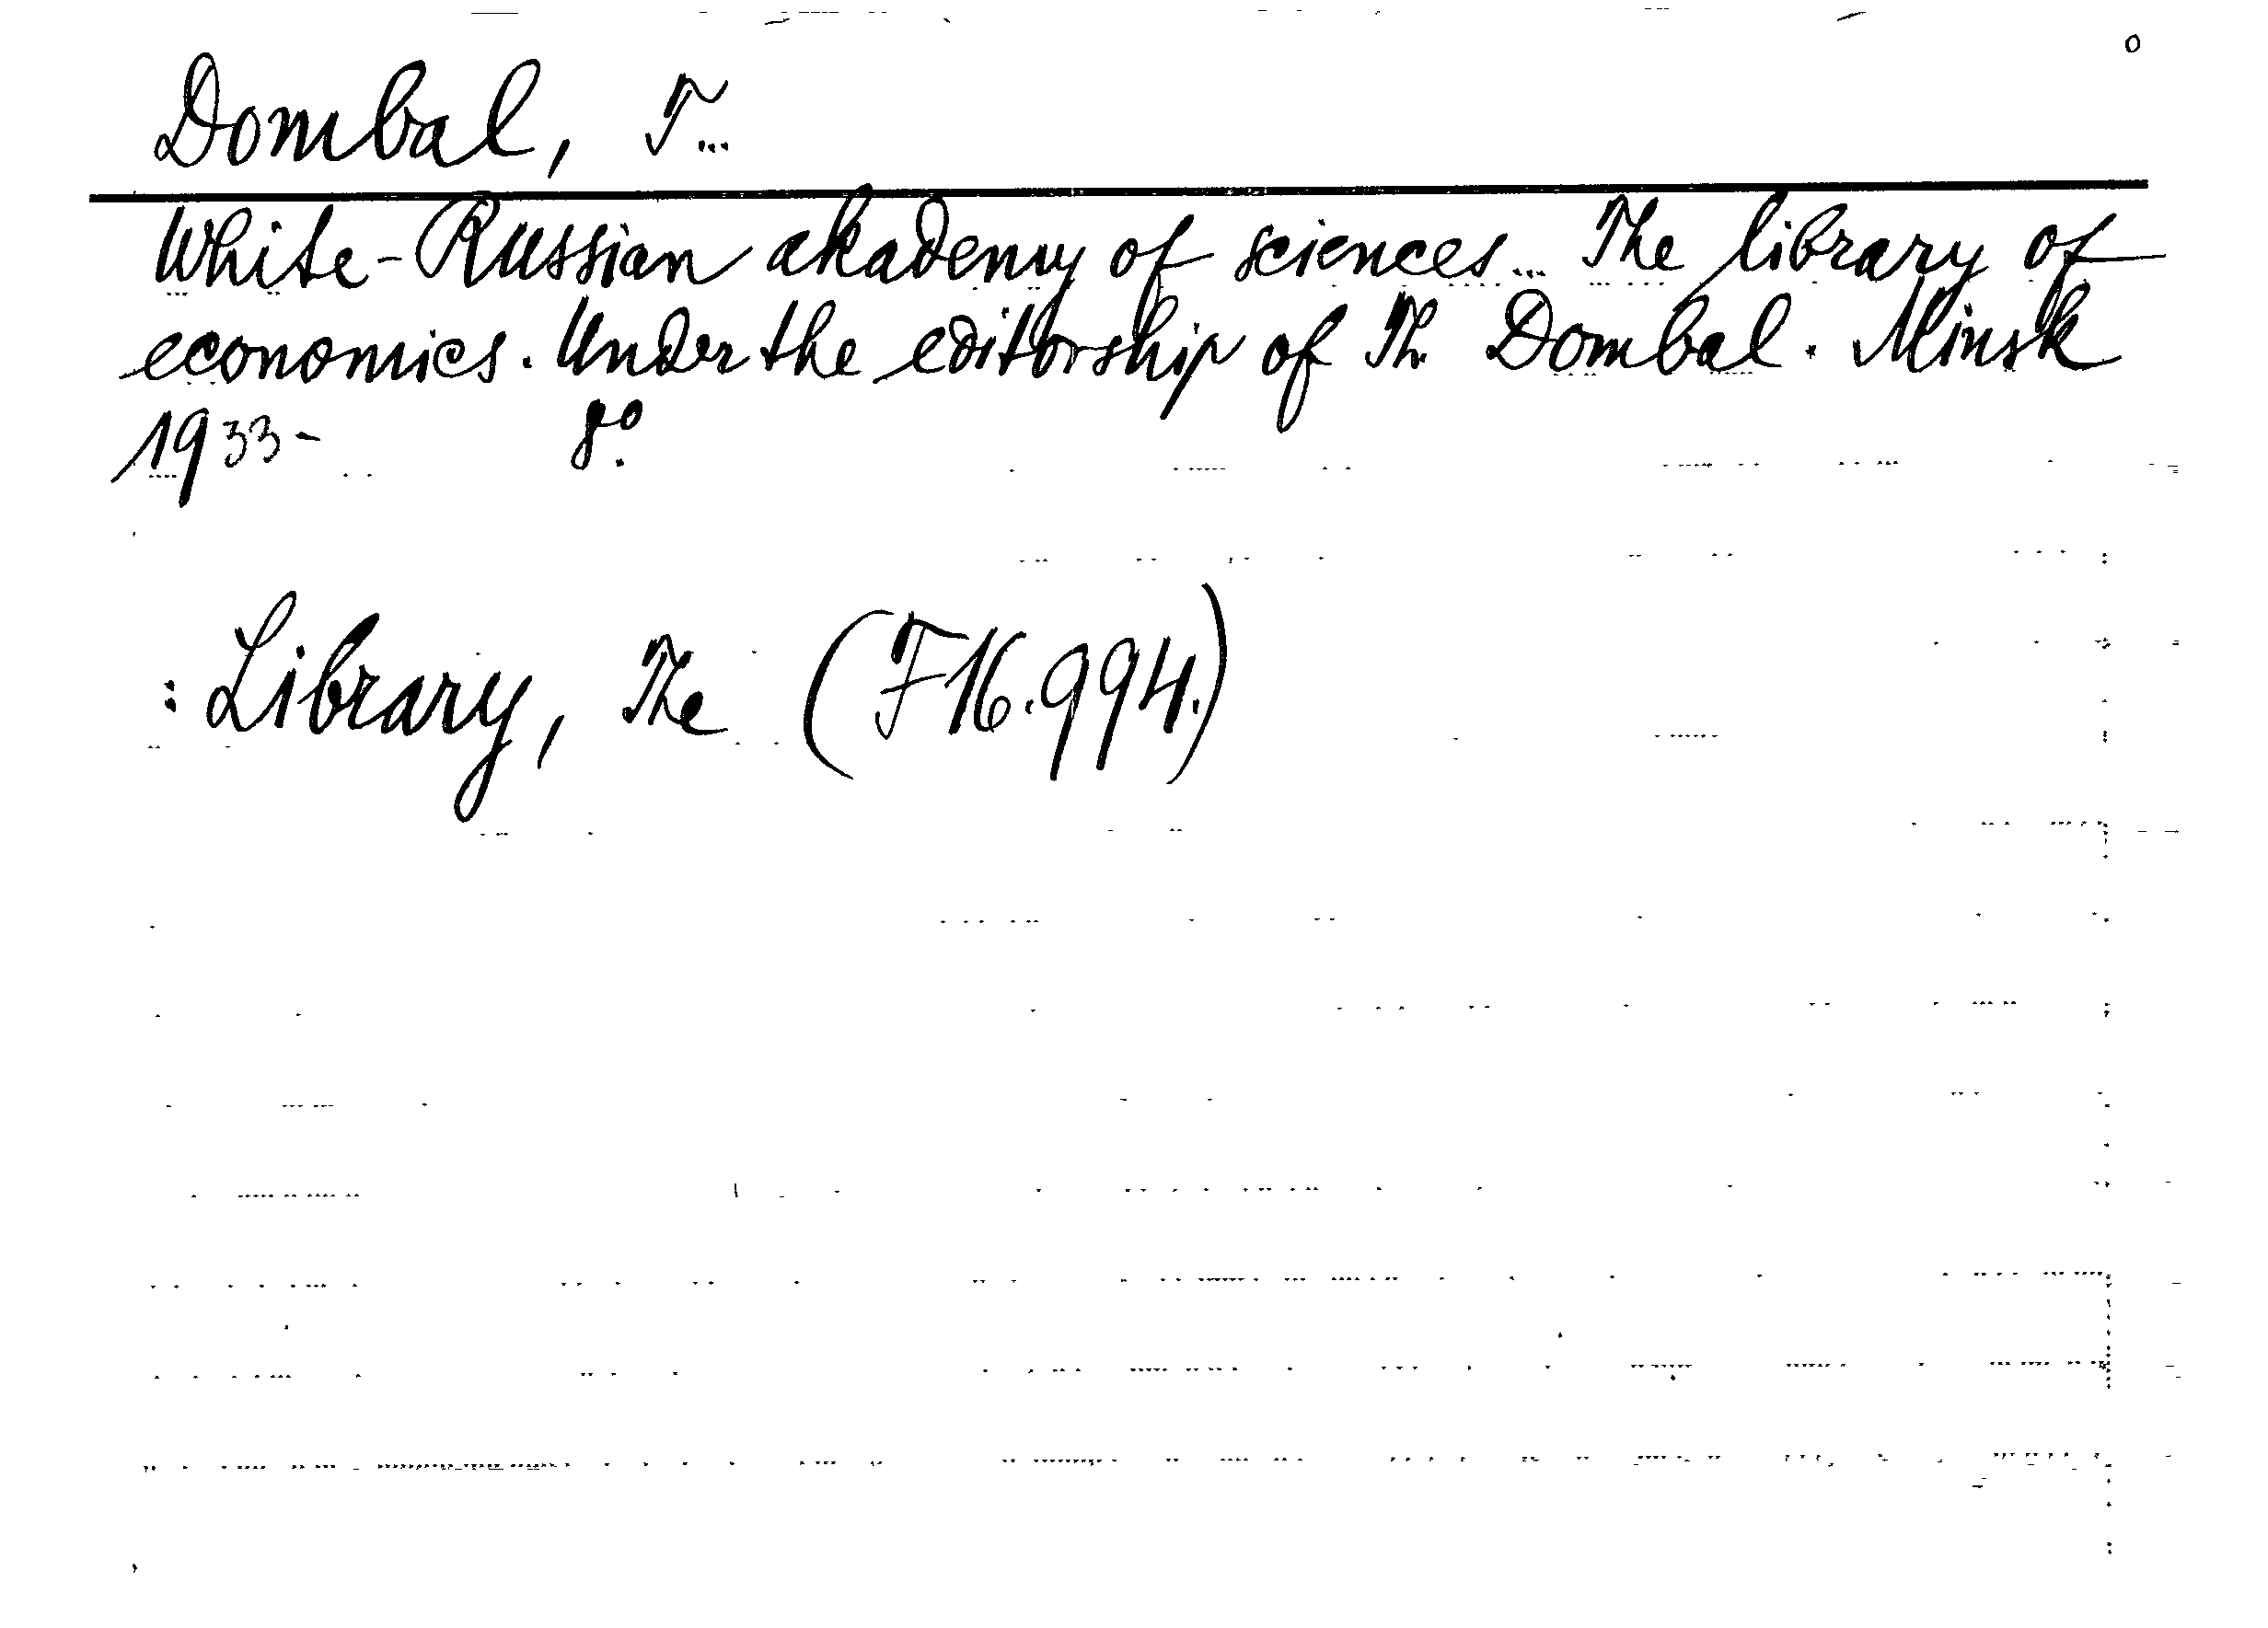 Dombal, T...
White-Russian akademy of sciences... The library of
economics. Under the editorship of Th. Dombal. Minsk
1933- 8°.
: Library, The (F16.994.)